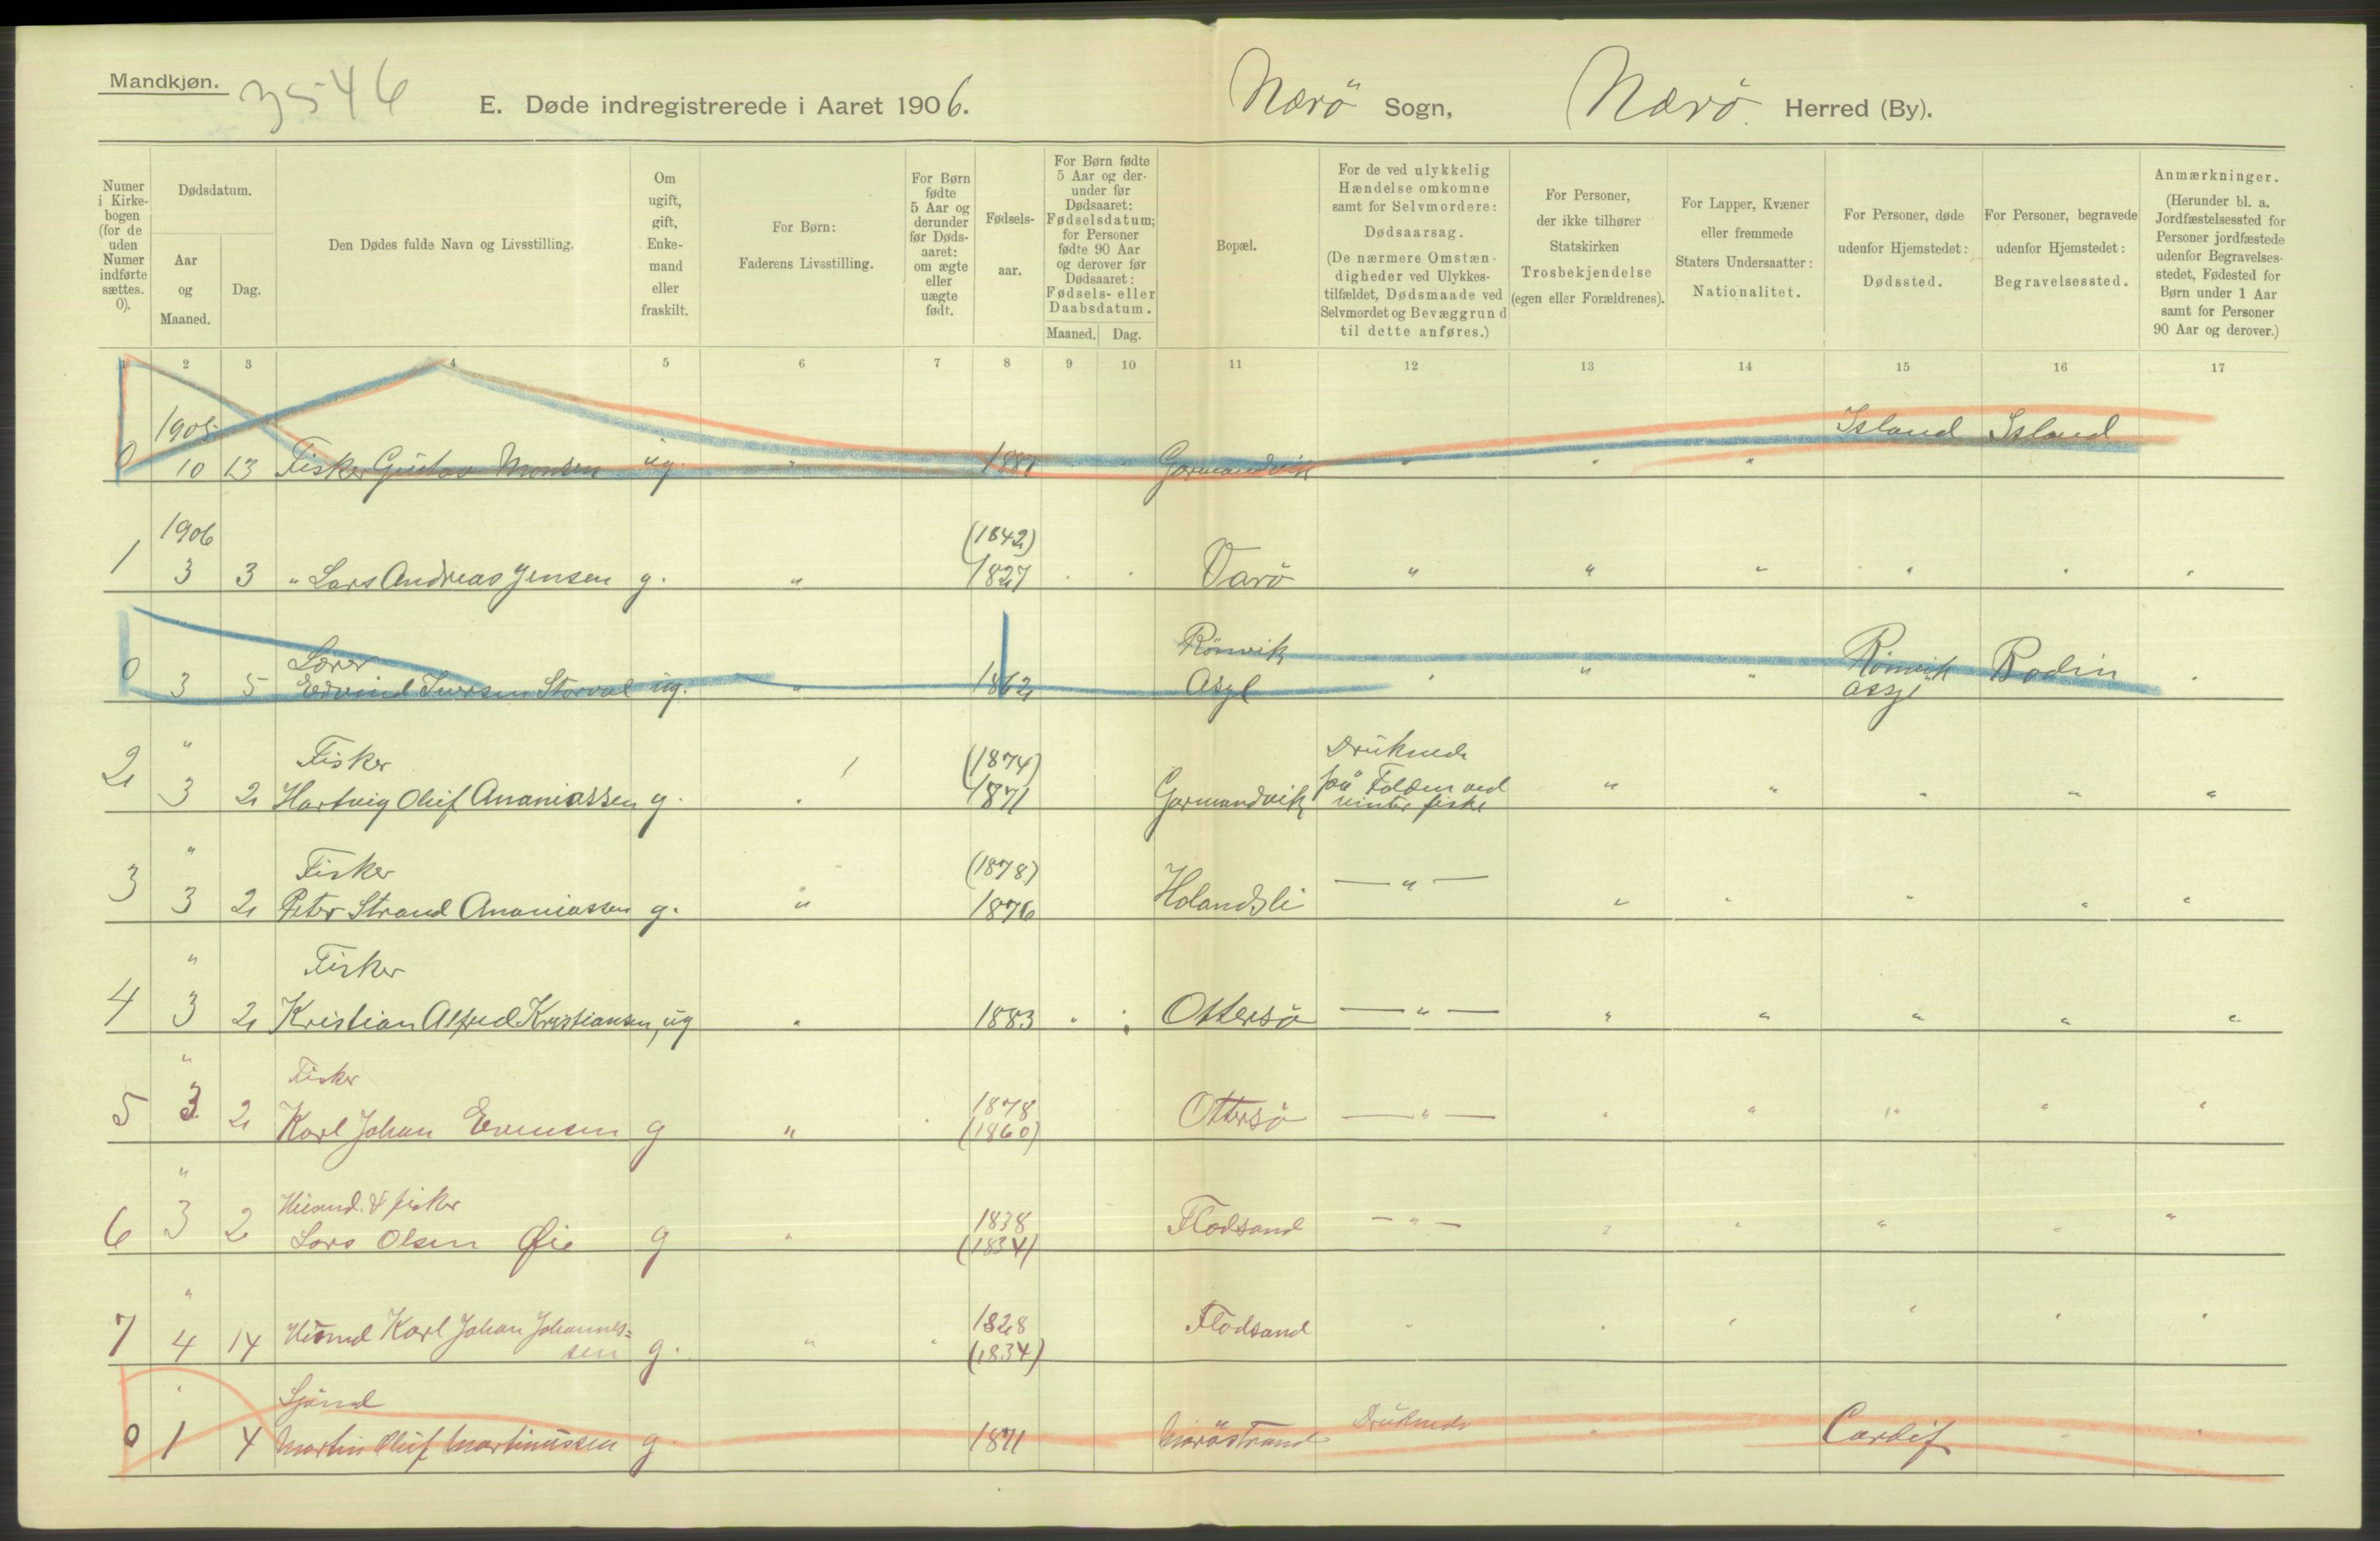 Mandkjøn.
3546
E. Døde indregistrerede i Aaret 1906.
Nærö Sogn,
Nærö Herred (By).
Numer
i Kirke-
bogen
(for de
uden
Numer
indførte
sættes.
0).
Dødsdatum.
Aar
og
Maaned.
Dag.
Den Dødes fulde Navn og Livsstilling.
Om
ugift,
gift,
Enke-
mand
eller
fraskilt.
For Børn:
Faderens Livsstilling.
For Børn
fødte
5 Aar og
derunder
før Døds-
aaret:
om ægte
eller
uægte
født.
Fødsels-
aar.
For Børn fødte
5 Aar og der-
under før
Dødsaaret:
Fødselsdatum;
for Personer
fødte 90 Aar
og derover før
Dødsaaret:
Fødsels- eller
Daabsdatum.
Maaned. Dag.
Bopæl.
For de ved ulykkelig
Hændelse omkomne
samt for Selvmordere:
Dødsaarsag.
(De nærmere Omstæn-
digheder ved Ulykkes-
tilfældet, Dødsmaade ved
Selvmordet og Bevæggrund
til dette anføres.)
For Personer,
der ikke tilhører
Statskirken
Trosbekjendelse
(egen eller Forældrenes).
For Lapper, Kvæner
eller fremmede
Staters Undersaatter:
Nationalitet.
For Personer, døde
udenfor Hjemstedet:
Dødssted.
For Personer, begravede
udenfor Hjemstedet:
Begravelsessted.
Anmærkninger.
(Herunder bl. a.
Jordfæstelsessted for
Personer jordfæstede
udenfor Begravelses-
stedet, Fødested for
Børn under 1 Aar
samt for Personer
90 Aar og derover.)
1 2 3 4 5 6 7 8 9 10 11 12 13 14 15 16 17
1905 Island Island
0 10 13 Fisker Gustav Monsen ug. " 1881 Garmandvik " " "
1906 (1842)
1 3 3 " Lars Andreas Jensen g. " 1827 Varö " " " " " "
Lærer Rönvik Rönvik Bodin
0 3 5 Edvind Iversen Storval ug. " 1862 Asyl " " " assyl "
" Fisker (1874) Druknede
2 3 2 Hartvig Oluf Ananiassen g. " 1871 Garmandvik på Folden ved " " " " "
vinter fiske
" Fisker (1878)
3 3 2 Peter Strand Ananiassen g. " 1876 Holandsli — " — " " " " "
" Fisker
4 3 2 Kristian Alfred Krystiansen, ug " 1883 " " Ottersö — " — " " " " "
" Fisker 1878
5 3 2 Karl Johan Evensen g " (1860) Ottersö — " — " " " " "
" Husmd. & fisker 1838
6 3 2 Lars Olsen Øie g " (1834) Flodsand — " — " " " " "
" 1828
7 4 14 Husmd Karl Johan Johannes= g. " " (1834) Flodsand " " " " " "
sen
" Sjömd Druknede
0 1 4 Martin Oluf Martinussen g 1871 Næröstrand " Cardif " "